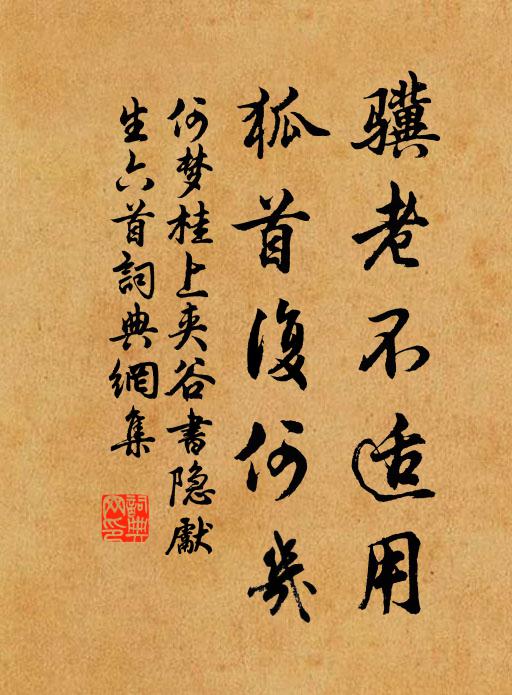 驥老不适用
狐首復何幾
何梦桂上夹谷書隐獻
生六首詞典網集
詞典
网印